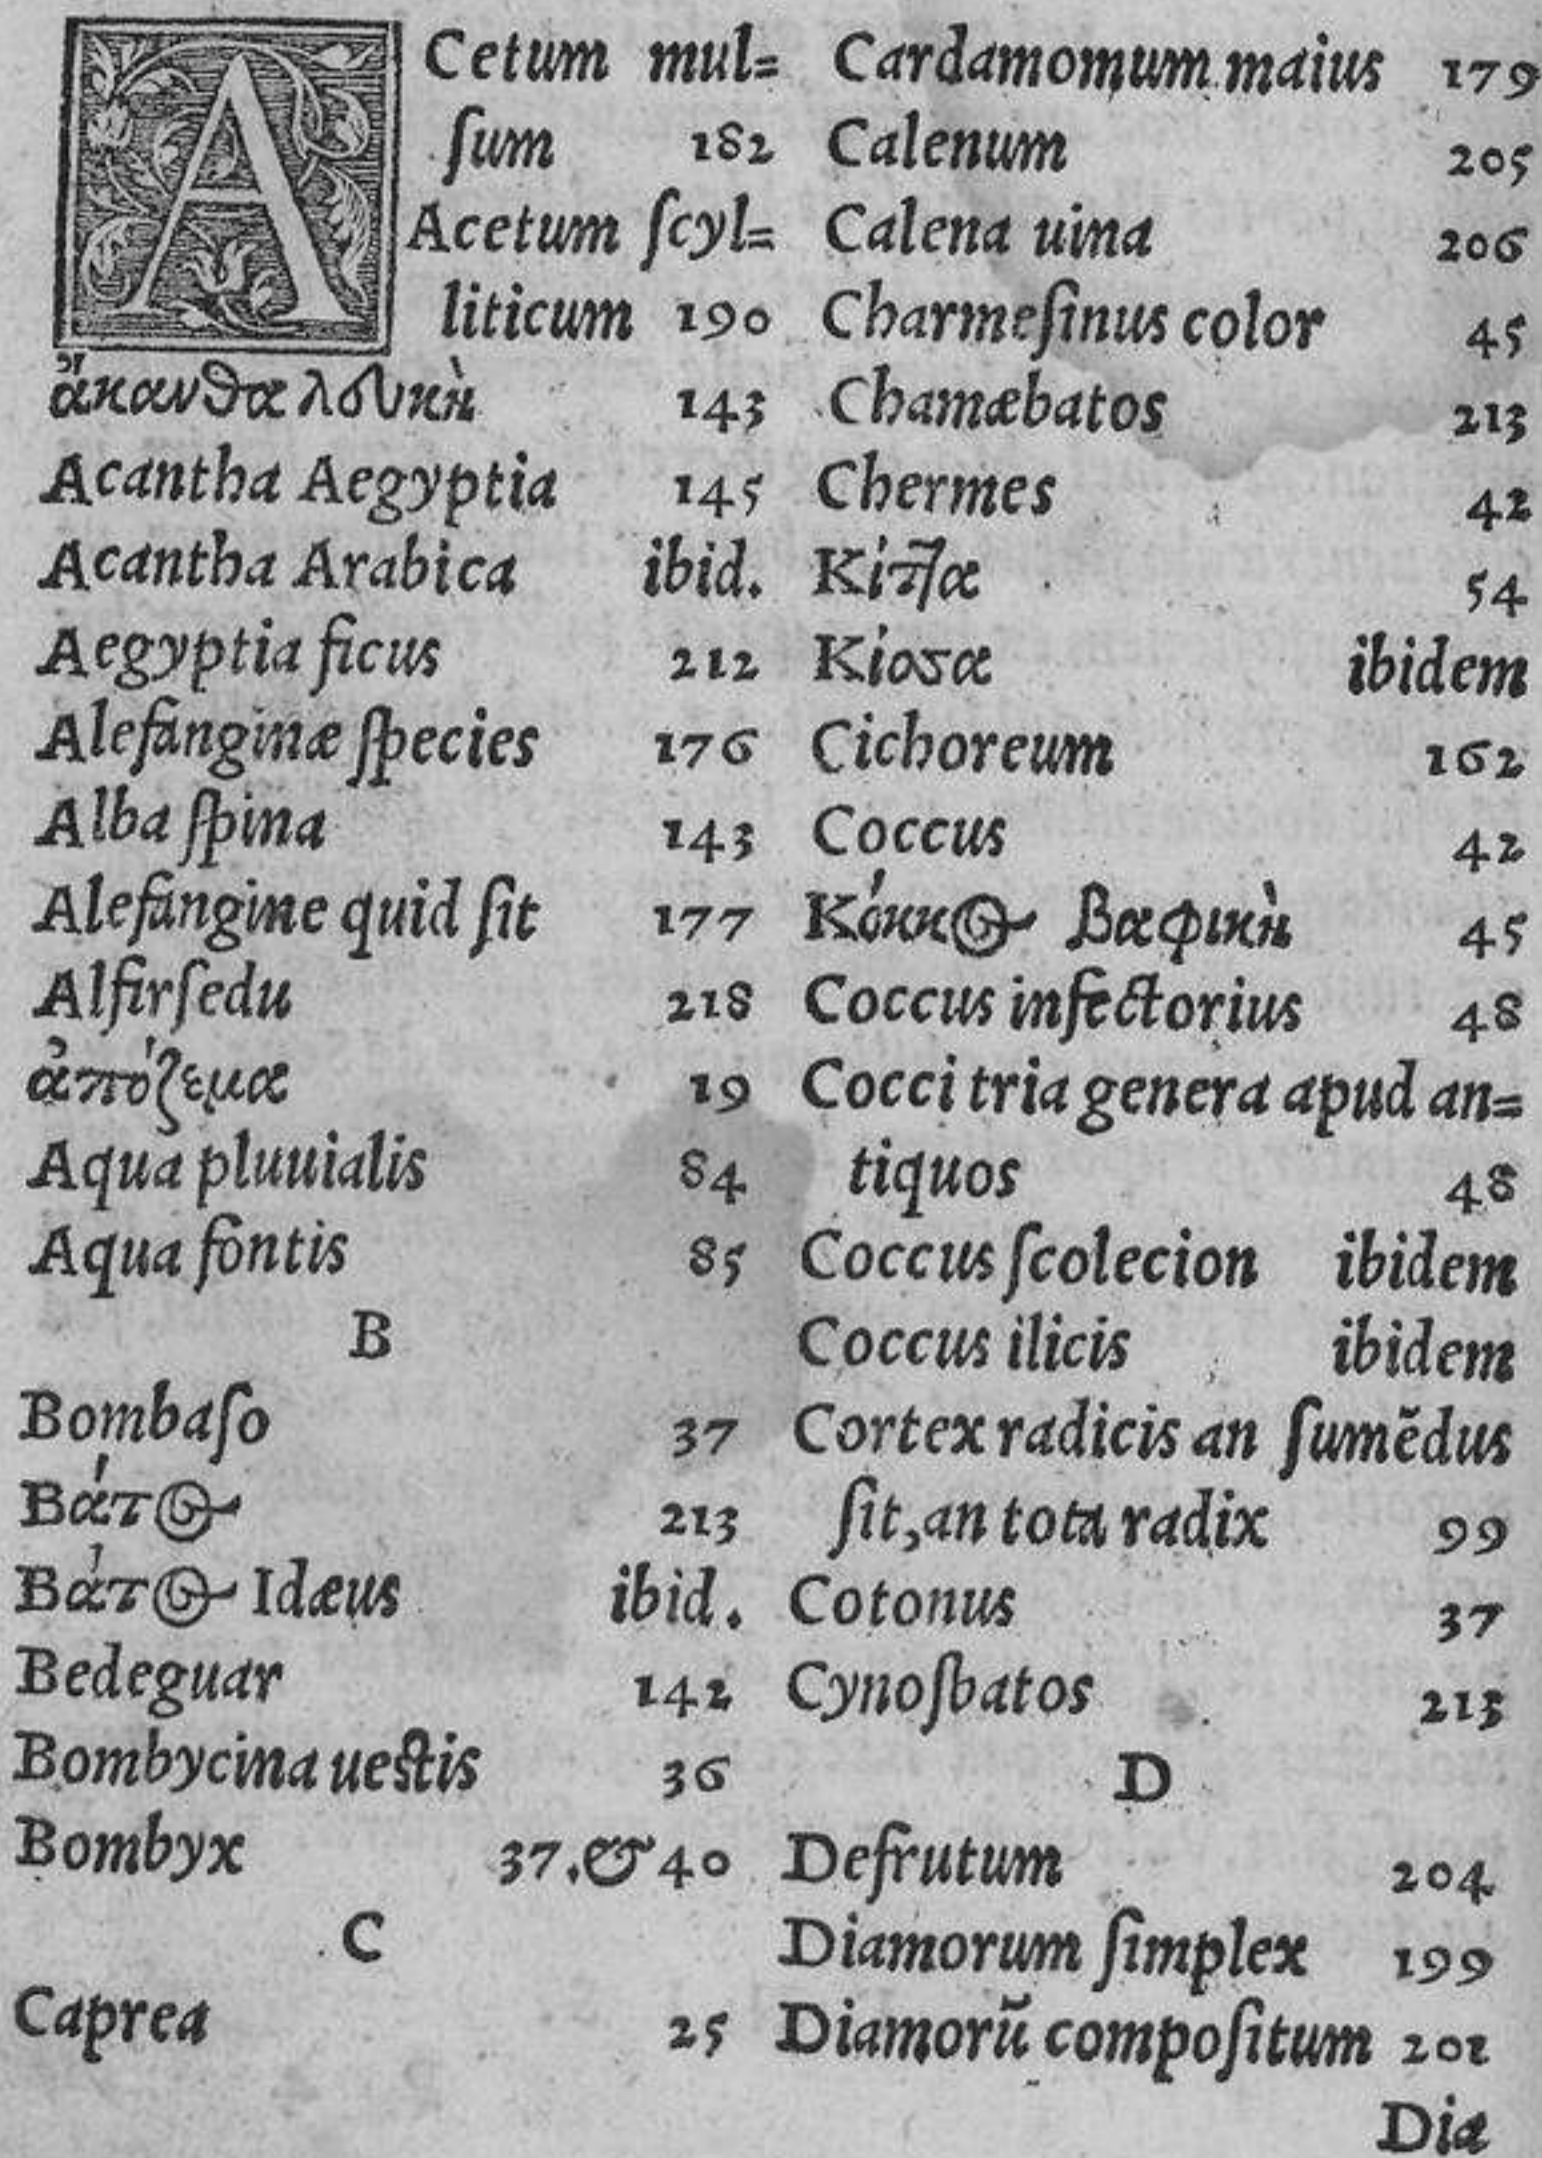 ACetum mul=
ſum 182
Acetum ſcyl=
liticum 190
ἄκανθα λευκὴ 143
Acantha Aegyptia 145
Acantha Arabica ibid.
Aegyptia ficus 212
Alefanginæ ſpecies 176
Alba ſpina 143
Alefangine quid ſit 177
Alfirſedu 218
ἀπόζεμα 19
Aqua pluuialis 84
Aqua fontis 85
B
Bombaſo 37
Βάτος 213
Βάτος Idæus ibid.
Bedeguar 142
Bombycina ueſtis 36
Bombyx 37.& 40
C
Caprea 25
Cardamomum maius 179
Calenum 205
Calena uina 206
Charmeſinus color 45
Chamæbatos 213
Chermes 42
Κίττα 54
Κίοσα ibidem
Cichoreum 162
Coccus 42
Κόκκος βαφικὴ 45
Coccus infectorius 48
Cocci tria genera apud an=
tiquos 48
Coccus ſcolecion ibidem
Coccus ilicis ibidem
Cortex radicis an ſumēdus
ſit,an tota radix 99
Cotonus 37
Cynoſbatos 213
D
Defrutum 204
Diamorum ſimplex 199
Diamorū compoſitum 201
Dia